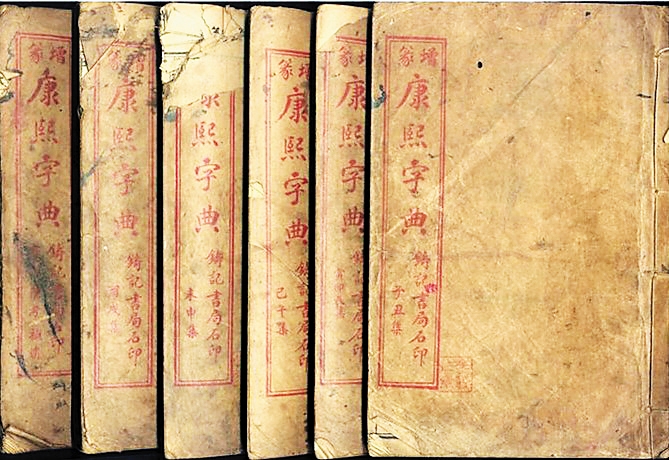 增篆
康熙字典
鑄記書局石印
子丑集
增篆
康熙字典
鑄記書局石印
寅卯辰集
增篆
康熙字典
鑄記書局石印
巳午集
康熙字典
鑄記書局石印
未申集
增篆
康熙字典
鑄記書局石印
酉戌集
增篆
康熙字典
鑄記書局石印